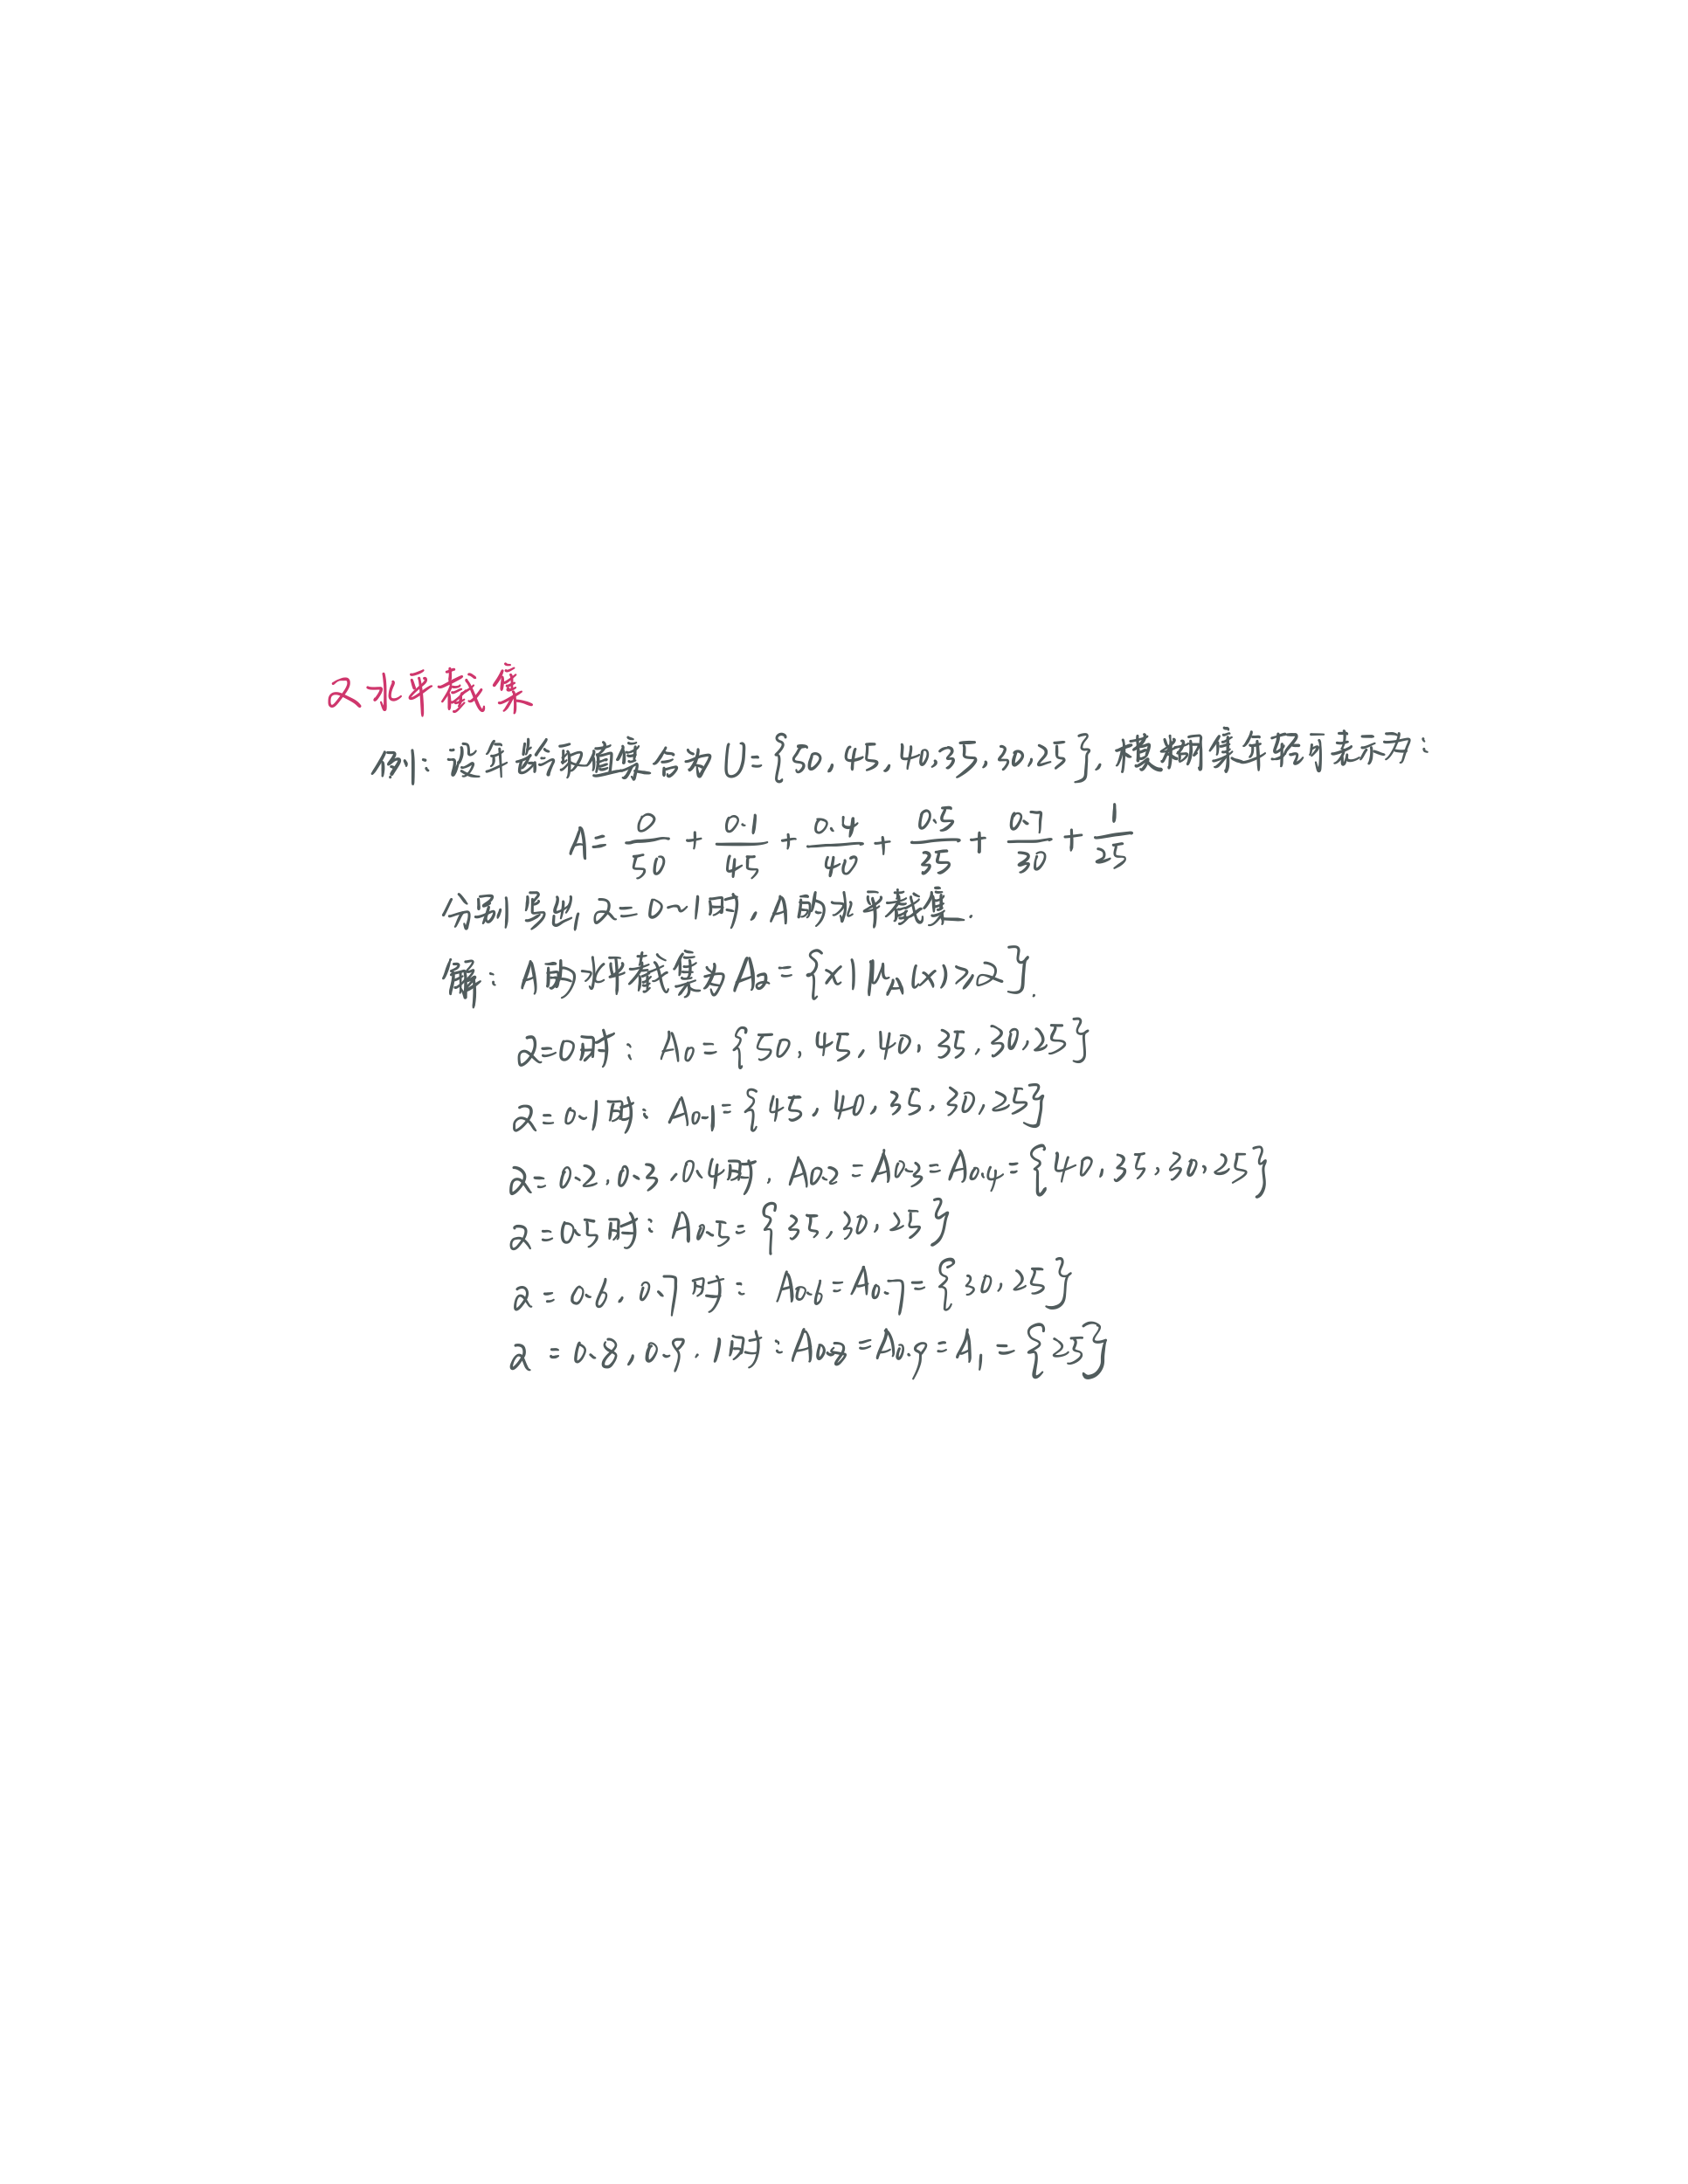 α水平截集
例: 设年龄取值集合为 U={50,45,40,35,30,25}, 模糊集年轻可表示为:
A= 0/50 + 0.1/45 + 0.4/40 + 0.5/35 + 0.7/30 + 1/25
分别写出 α=0~1时, A的水平截集.
解: A的水平截集为 Aα={x|μA(x)≥α}.
α=0时: A0={50,45,40,35,30,25}
α=0.1时: A0.1={45,40,35,30,25}
α=0.2,0.3,0.4时, A0.2=A0.3=A0.4={40,35,30,25}
α=0.5时: A0.5={35,30,25}
α=0.6,0.7时: A0.6=A0.7={30,25}
α=0.8,0.9,1时: A0.8=A0.9=A1={25}